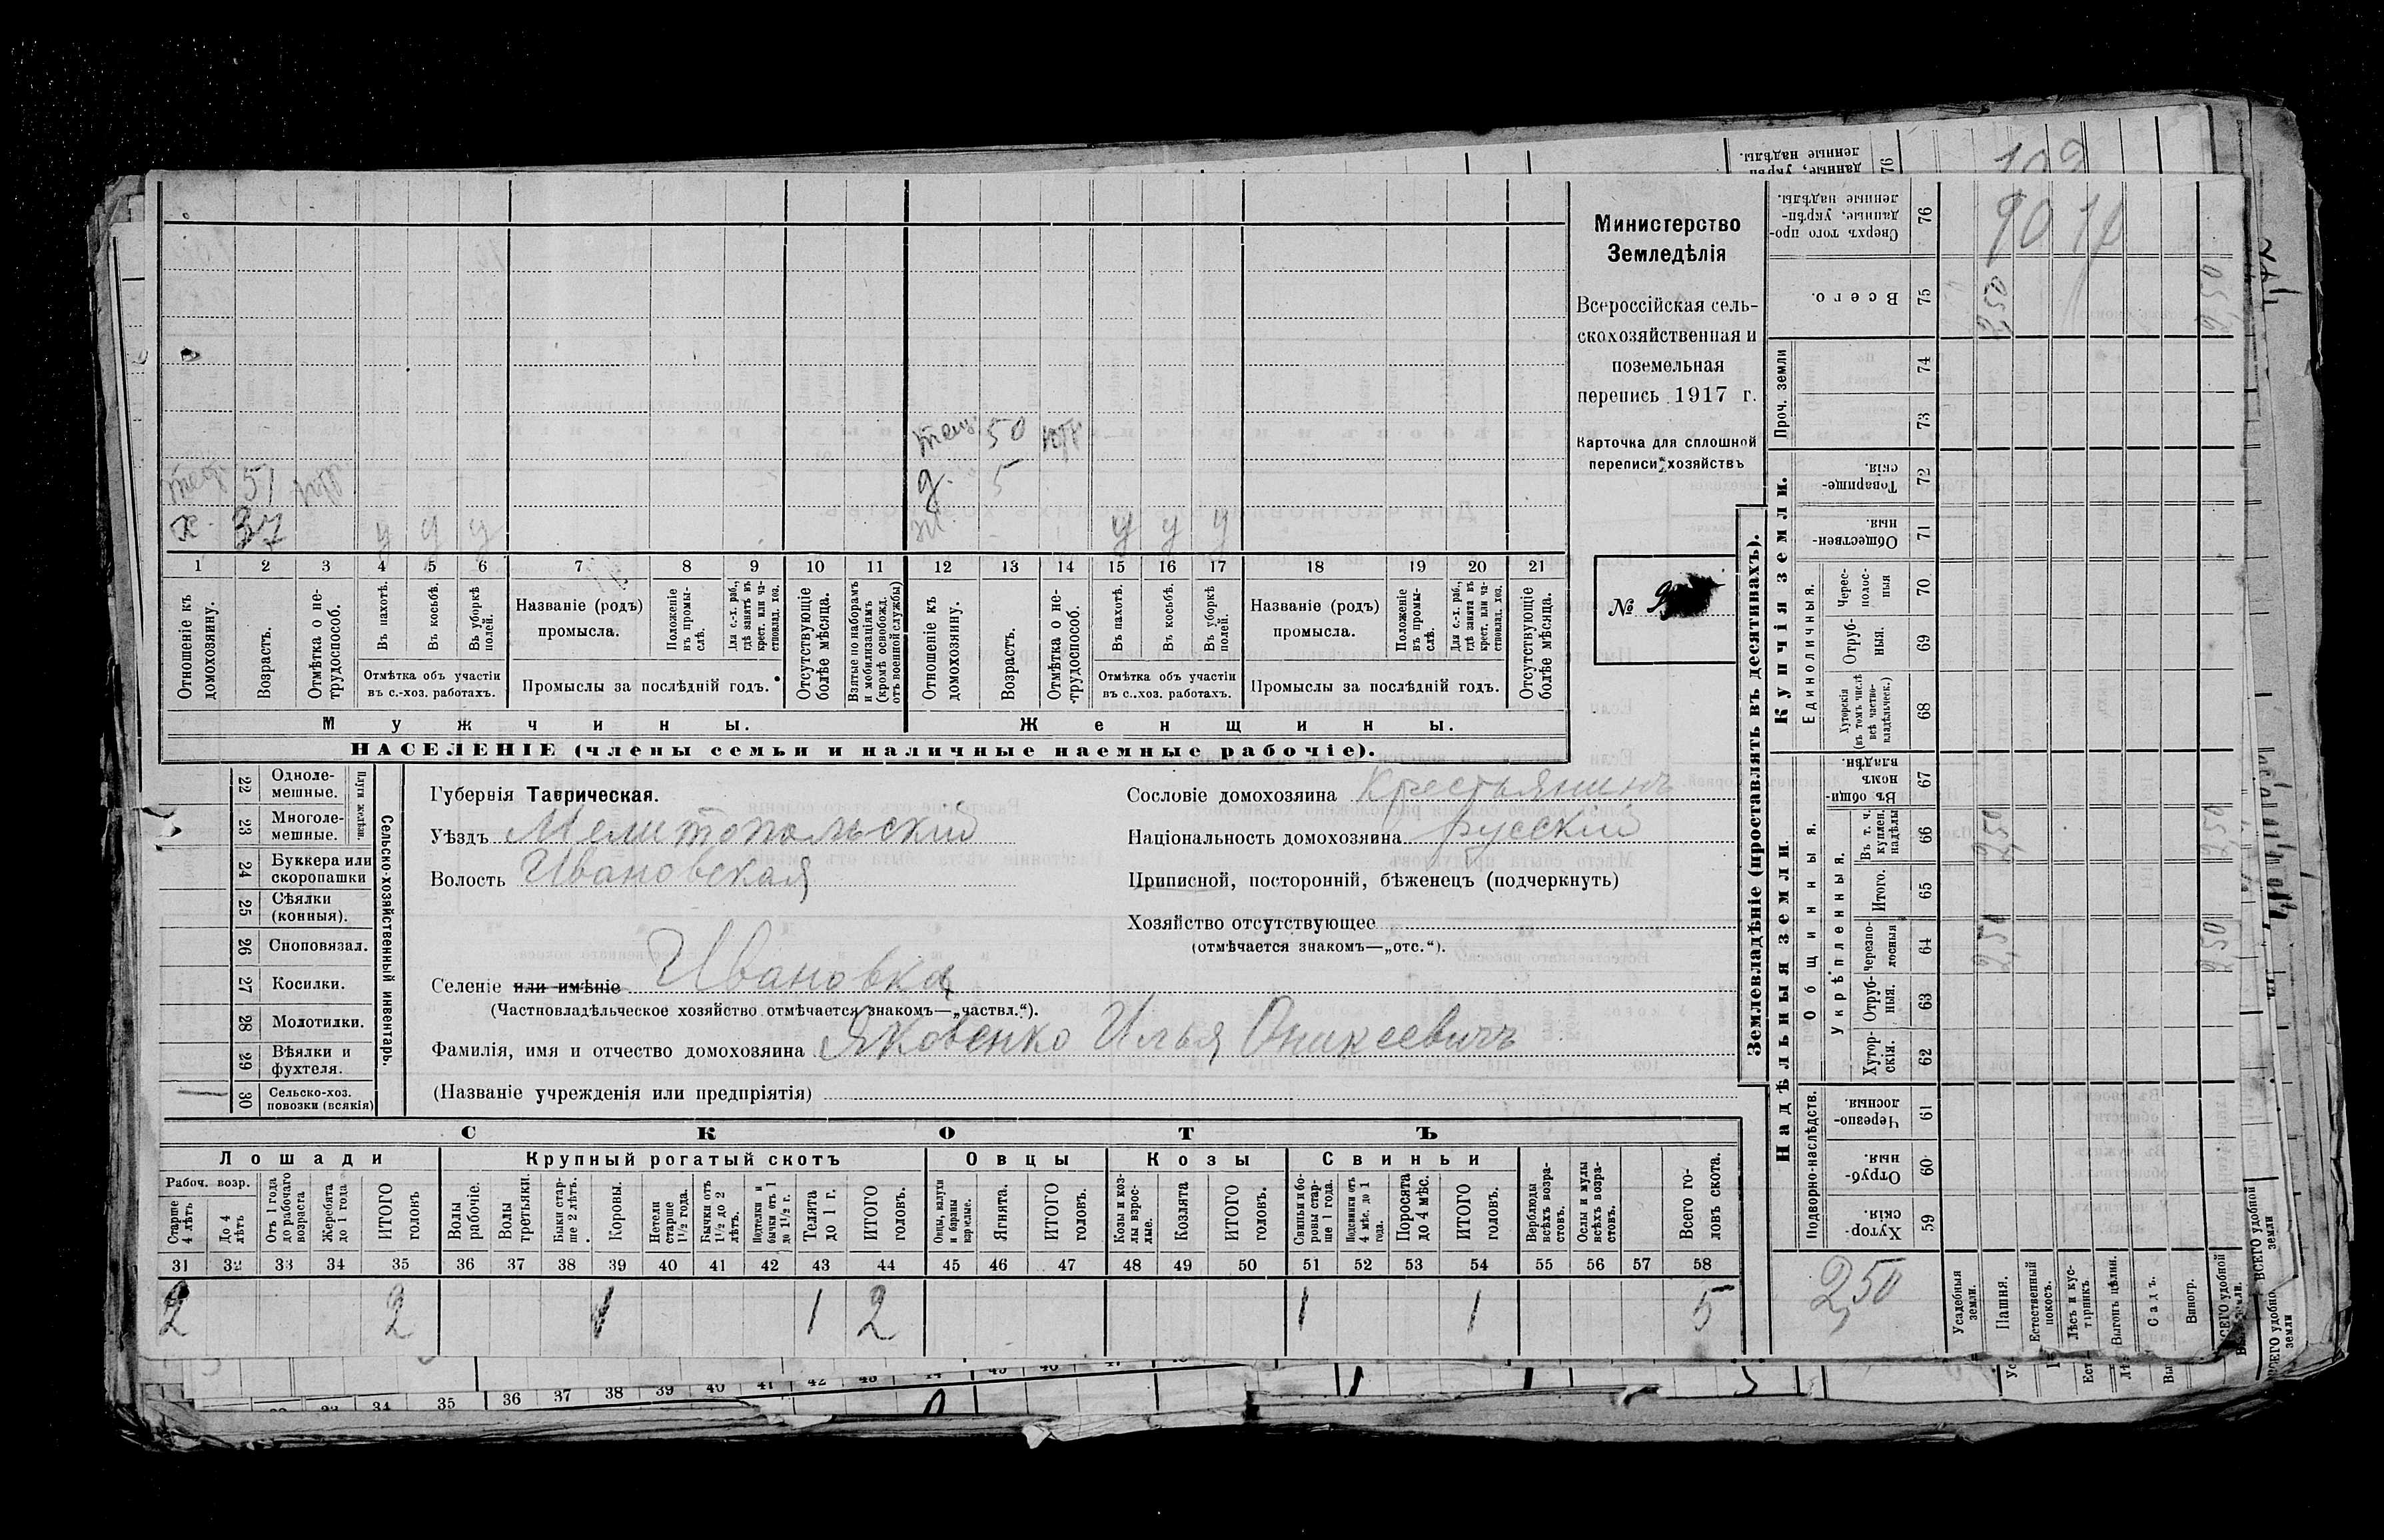 Министерство
Земледѣлія
Всероссійская сель-
скохозяйственная и
поземельная
перепись 1917 г.
Карточка для сплошной
переписи хозяйствъ
№
50
д. 5
51
х. 37 у у у у у у
1 2 3 4 5 6 7 8 9 10 11 12 13 14 15 16 17 18 19 20 21
Отношеніе къ домохозяину.
Возрастъ.
Отмѣтка о не-трудоспособ.
Въ пахотѣ.
Въ косьбѣ.
Въ уборкѣ полей.
Отмѣтка объ участіи въ с.-хоз. работахъ.
Названіе (родъ) промысла.
Положеніе въ промы-слѣ.
Для с.-х. раб., гдѣ занятъ въ крест. или ча-стновлад. хоз.
Промыслы за послѣдній годъ.
Отсутствующіе болѣе мѣсяца.
Взятые по наборамъ и мобилизаціямъ (кромѣ освобожд. отъ военной службы)
Отношеніе къ домохозяину.
Возрастъ.
Отмѣтка о не-трудоспособ.
Въ пахотѣ.
Въ косьбѣ.
Въ уборкѣ полей.
Отмѣтка объ участіи въ с.-хоз. работахъ.
Названіе (родъ) промысла.
Положеніе въ промы-слѣ.
Для с.-х. раб., гдѣ занята въ крест. или ча-стновлад. хоз.
Промыслы за послѣдній годъ.
Отсутствующіе болѣе мѣсяца.
Мужчины. Женщины.
НАСЕЛЕНІЕ (члены семьи и наличные наемные рабочіе).
22 Одноле-мешные.
23 Многоле-мешные.
Плуги желѣзн.
24 Буккера или скоропашки
25 Сѣялки (конныя).
26 Сноповязал.
27 Косилки.
28 Молотилки.
29 Вѣялки и фухтеля.
30 Сельско-хоз. повозки (всякія)
Сельско-хозяйственный инвентарь.
Губернія Таврическая.
Уѣздъ Мелитопольскій
Волость Ивановская
Сословіе домохозяина Крестьянинъ
Національность домохозяина русскій
Приписной, посторонній, бѣженецъ (подчеркнуть)
Хозяйство отсутствующее
(отмѣчается знакомъ—„отс.“).
Селеніе или имѣніе Ивановка
(Частновладѣльческое хозяйство отмѣчается знакомъ—„частвл.“).
Фамилія, имя и отчество домохозяина Яковенко Илья Оникеевичъ
(Названіе учрежденія или предпріятія)
СКОТЪ
Лошади Крупный рогатый скотъ Овцы Козы Свиньи
Рабоч. возр.
Старше 4 лѣтъ
До 4 лѣтъ
Отъ 1 года до рабочаго возраста
Жеребята до 1 года
ИТОГО головъ
Волы рабочіе.
Волы третьяки.
Быки стар-ше 2 лѣтъ.
Коровы.
Нетели старше 1½ года.
Бычки отъ 1½ до 2 лѣтъ.
бычки отъ 1 до 1½ г.
Телята до 1 г.
ИТОГО головъ.
Овцы, валухи и бараны взрослые.
Ягнята.
ИТОГО головъ.
Козы и коз-лы взрос-лые.
Козлята
ИТОГО головъ.
Свиньи и бо-ровы стар-ше 1 года.
Подсвинки отъ 4 мѣс. до 1 года.
Поросята до 4 мѣс.
ИТОГО головъ.
Верблюды всѣхъ возра-стовъ.
Ослы и мулы всѣхъ возра-стовъ.
Всего го-ловъ скота.
31 32 33 34 35 36 37 38 39 40 41 42 43 44 45 46 47 48 49 50 51 52 53 54 55 56 57 58
2 2 1 1 2 1 1 5
Землевладѣніе (проставлять въ десятинахъ).
Купчія земли.
Надѣльныя земли.
Сверхъ того про-данные, укрѣп-ленные надѣлы. 76
Всего. 75 2,50 2,50
Проч. земли 74 73
Товарище-скія. 72
Обществен-ныя. 71
Единоличныя.
Черес-полос-ныя 70
Отруб-ныя. 69
Хуторскія (въ томъ числѣ всѣ частно-владѣльческ.) 68
Общинныя.
Въ общин-номъ владѣн. 67
Укрѣпленныя.
Въ т. ч. куплен. надѣлы 66 2,50 2,50
Итого. 65
Черезпо-лосныя 64 2,50 2,50
Отруб-ныя. 63
Хутор-скія. 62
Подворно-наслѣдств.
Черезпо-лосныя. 61
Отруб-ныя. 60
Хутор-скія. 59
2,50
Усадебныя земли.
Пашня.
Естественный покосъ.
Лѣсъ и кус-тарникъ
Выгонъ цѣлин.
Садъ.
Виногр.
ВСЕГО удобной земли.